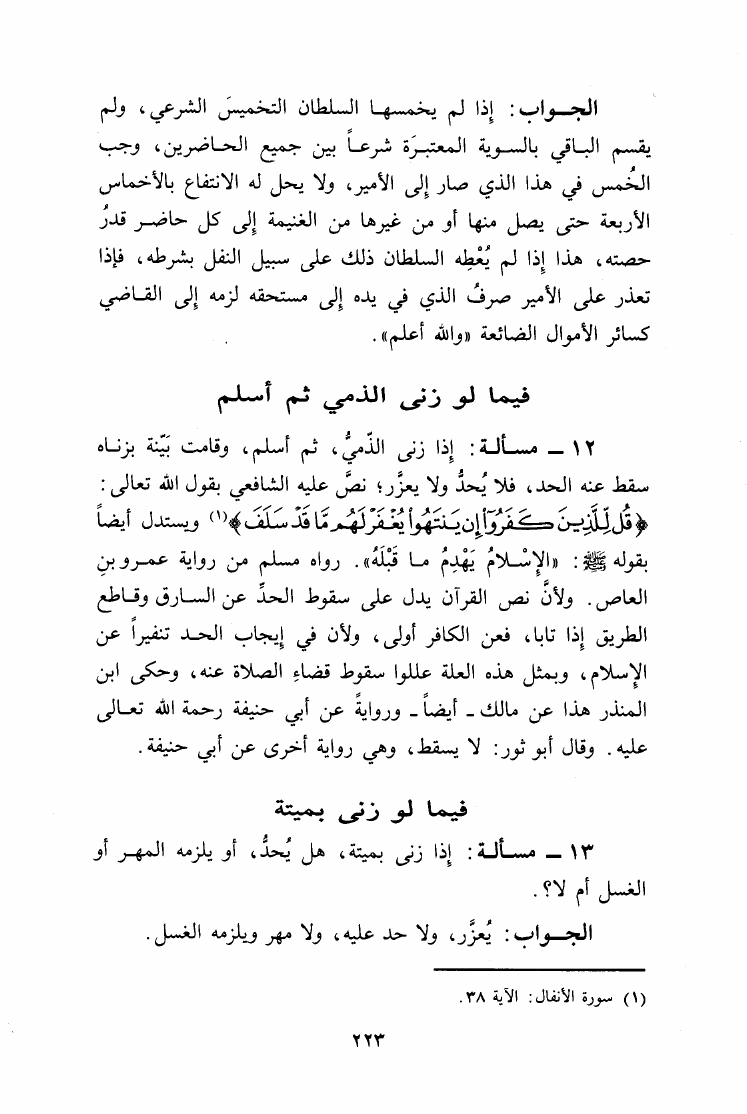 الجـــواب: إذا لم يخمسهـا السلطان التخميسَ الشرعي، ولم
يقسم البـاقي بالسـوية المعتبـرَة شرعـاً بين جميع الحـاضرين، وجب
الخُمس في هذا الذي صار إلى الأمير، ولا يحل له الانتفاع بالأخماس
الأربعة حتى يصل منها أو من غيرها من الغنيمة إلى كل حاضـر قدرُ
حصته، هذا إذا لم يُعْطِه السلطان ذلك على سبيل النفل بشرطه، فإذا
تعذر على الأمير صرفُ الذي في يده إلى مستحقه لزمه إلى القـاضي
كسائر الأموال الضائعة «والله أعلم».
فيما لو زنى الذمي ثم أسلم
١٢ ـ مسـألـة: إذا زنى الذّميُّ، ثم أسلم، وقامت بَيّنة بزنـاه
سقط عنه الحد، فلا يُحدُّ ولا يعزَّر؛ نصَّ عليه الشافعي بقول الله تعالى:
﴿قُل لِّلَّذِينَ كَفَرُوٓاْ إِن يَنتَهُواْ يُغْفَرْ لَهُم مَّا قَدْ سَلَفَ﴾(١) ويستدل أيضاً
بقوله ﷺ: «الإِسْـلامُ يَهْدِمُ مـا قَبْلَهُ». رواه مسلم من رواية عمـرو بنِ
العاص. ولأنَّ نص القرآن يدل على سقوط الحدِّ عن السـارق وقـاطع
الطريق إذا تابا، فعن الكافر أولى، ولأن في إيجاب الحـد تنفيراً عن
الإسلام، وبمثل هذه العلة عللوا سقوط قضاءِ الصلاة عنه، وحكى ابن
المنذر هذا عن مالك ـ أيضاً ـ وروايةً عن أبي حنيفة رحمة الله تعـالى
عليه. وقال أبو ثور: لا يسقط، وهي رواية أخرى عن أبي حنيفة.
فيما لو زنى بميتة
١٣ ـ مسـألـة: إذا زنى بميتة، هل يُحدُّ، أو يلزمه المهـر أو
الغسل أم لا؟.
الجـــواب: يُعزَّر، ولا حد عليه، ولا مهر ويلزمه الغسل.
(١) سورة الأنفال: الآية ٣٨.
٢٢٣